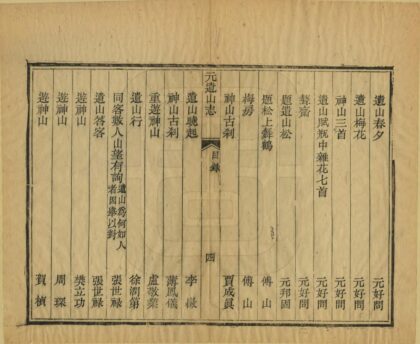 遺山春夕 元好問
遺山梅花 元好問
神山三首 元好問
遺山賦瓶中雜花七首 元好問
髯齋 元好問
題遺山松 元邦固
題松上舞鶴 傅山
梅房 傅山
神山古刹 賈成眞
元遺山志 目錄 四
遺山曉起 李
神山古刹 薄鳳儀
重遊神山 盧敬業
遺山行 徐潤第
同客數人山莖有詢遺山爲何如人者因舉以對 張世祿
遺山答客 張世祿
遊神山 樊立功
遊神山 周璨
遊神山 賀楨